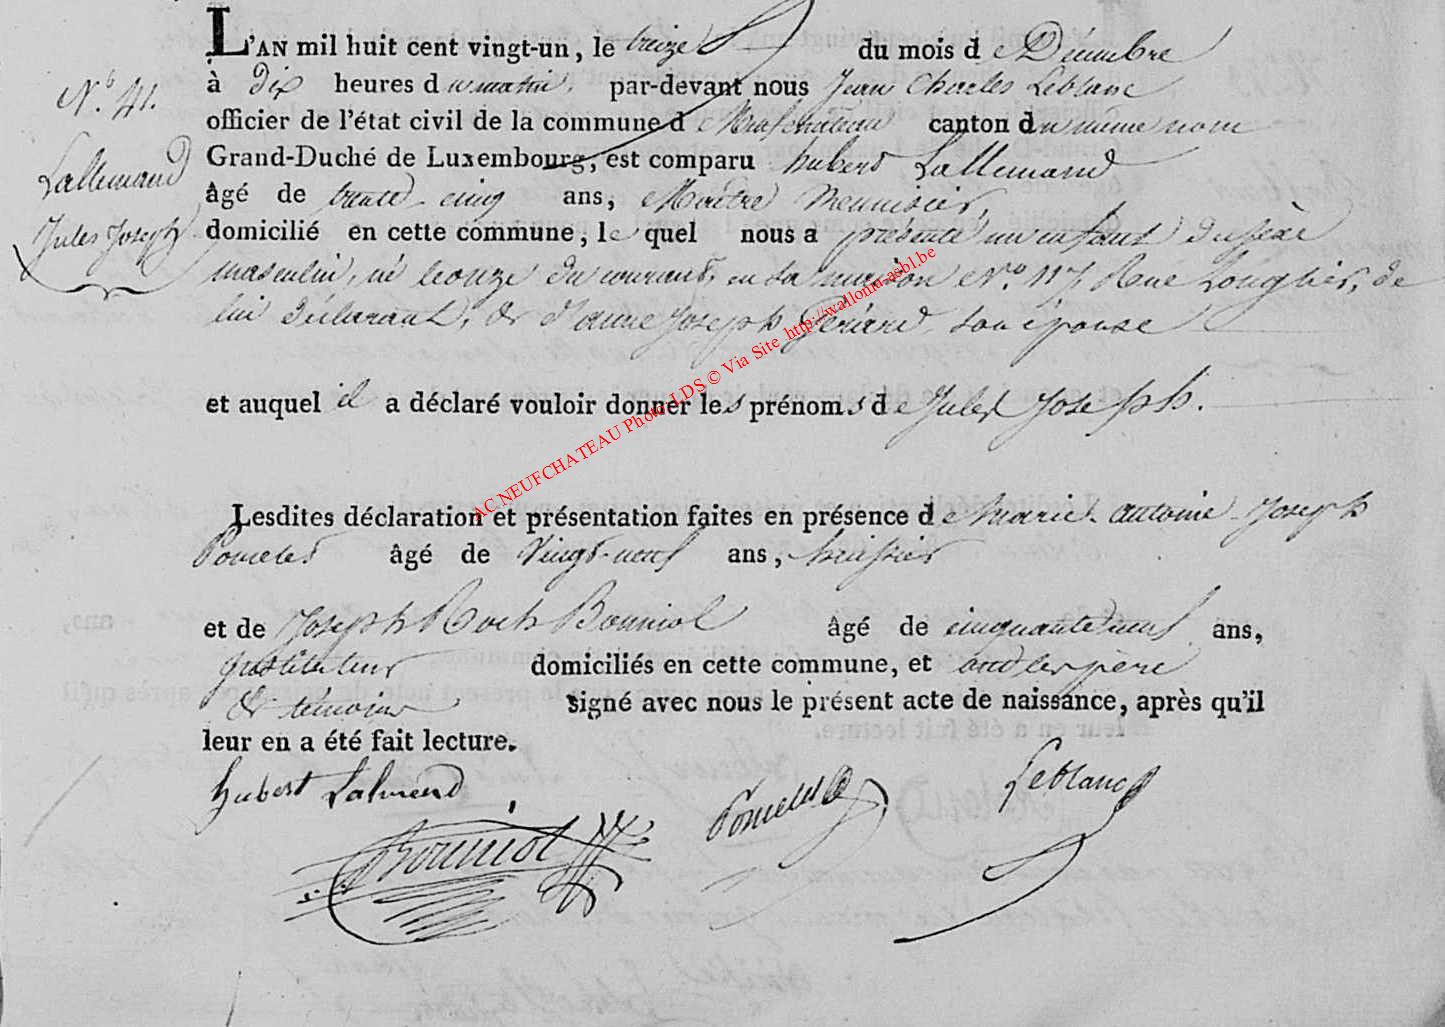 L'AN mil huit cent vingt-un, le treize du mois de Décembre
N.º 41.
à dix heures du matin, par-devant nous Jean Charles Leblanc
officier de l'état civil de la commune de Neufchâteau canton du même nom
Lallemand
Grand-Duché de Luxembourg, est comparu hubert Lallemand
âgé de trente cinq ans, Maître Menuisier,
Jules Joseph
domicilié en cette commune, lequel nous a présenté un enfant du sexe
masculin, né le onze du courant, en sa maison N.º 117, Rue Longlier, de
lui déclarant, & d'anne Joseph Gérard, son épouse
et auquel il a déclaré vouloir donner les prénoms de Jules Joseph.
AC NEUFCHATEAU Photo LDS © Via Site http://wallonia-asbl.be
Lesdites déclaration et présentation faites en présence de Marie-antoine-Joseph
Poncelet âgé de Vingt-neuf ans, huissier
et de Joseph Roch Bouniol âgé de cinquante neuf ans,
Instituteur domiciliés en cette commune, et ont les père
& témoins signé avec nous le présent acte de naissance, après qu'il
leur en a été fait lecture.
hubert Lalmend
Leblanc
Poncelet
Bouniol